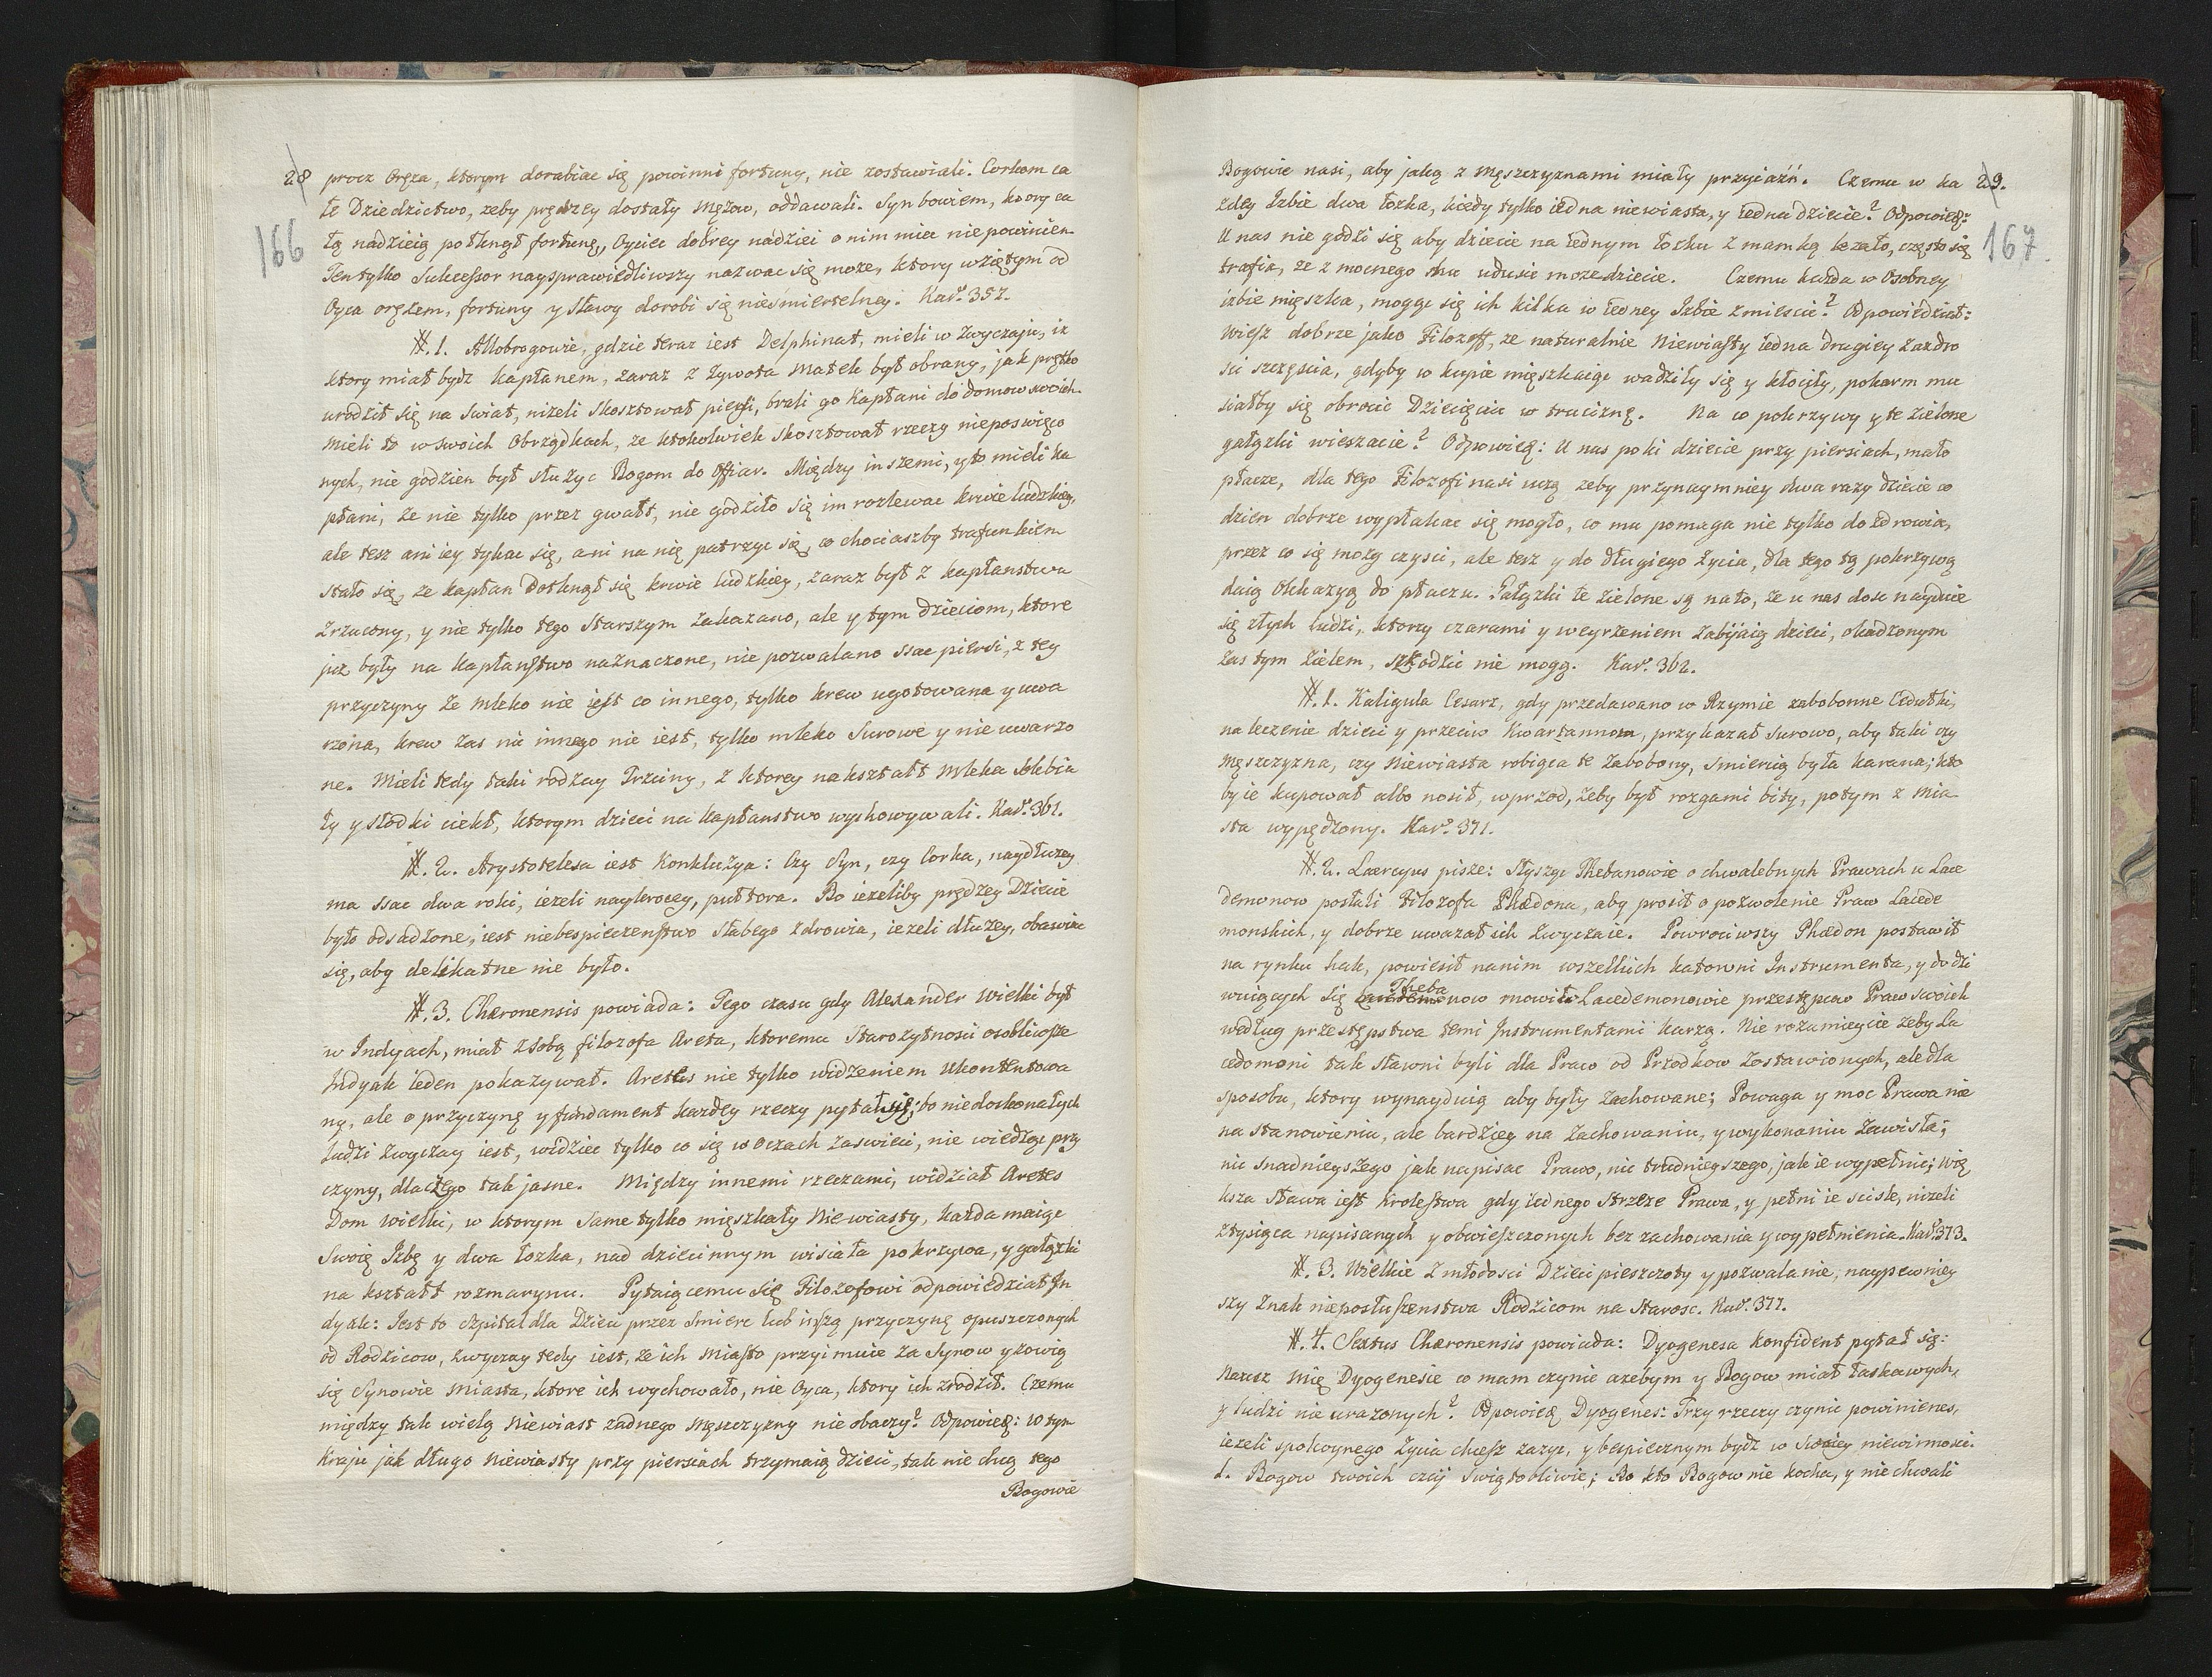 28
166
procz Oręża, ktorym dorabiac się powinni fortuny, nie zostawiali. Corkom ca
łe Dziedzictwo, zeby prędzey dostały Męzow, oddawali. Syn bowiem, ktory ca
łą nadzieią połknął fortunę, Oyciec dobrey nadziei o nim miec nie powinien
Ten tylko Sukcessor naysprawiedliwszy nazwac się moze, ktory wziętym od
Oyca orężem, fortuny y Sławy dorobi się nieśmiertelney. Kar. 357.
#. 1. Allobrogowie, gdzie teraz iest Delphinat, mieli w Zwyczaju, iz
ktory miał bydz kapłanem, zaraz z Zywota Matek był obrany, jak prętko
urodził się na Swiat, nizeli Skosztował piersi, brali go Kapłani do domow swoich.
Mieli to w swoich Obrządkach, ze ktokolwiek skosztował rzeczy nieposwięco
nych, nie godzien był słuzyc Bogom do Offiar. Między inszemi, y to mieli ka
płani, że nie tylko przez gwałt, nie godziło się im rozlewac krwie ludzkiey,
ale tesz ani iey tykac się, ani na nię patrzyc się, co chociaszby trafunkiem
stało się, ze kapłan Dotknął się krwie ludzkiey, zaraz był z kapłanstwa
Zrzucony, y nie tylko tego Starszym Zakazano, ale y tym dzieciom, ktore
juz były na kapłanstwo naznaczone, nie pozwalano ssac piersi, z tey
przyczyny Ze Mleko nie iest co innego, tylko krew ugotowana y uwa
rzona, krew zas nic innego nie iest, tylko mleko Surowe y nie uwarzo
ne. Mieli tedy taki rodzay Trzciny, z ktorey nakształt Mleka sok bia
ły y słodki ciekł, ktorym dzieci na kapłanstwo wychowywali. Kar. 361.
#. 2. Arystotelesa iest Konkluzya: Czy Syn, czy Corka, naydłuzey
ma ssac dwa roki, iezeli naykrocey, pułtora. Bo iezeliby prędzey Dziecie
było odsadzone, iest niebespieczenstwo Słabego zdrowia, iezeli dłuzey, obawiac
się, aby delikatne nie było.
#. 3. Chæronensis powiada: Tego czasu gdy Alexander Wielki był
w Indyach, miał z sobą filozofa Areta, ktoremu Starozytnosci osobliwsze
Indyak ieden pokazywał. Aretes nie tylko widzeniem Ukontentowa
ny, ale o przyczynę y fundament kazdey rzeczy pytał się; bo niedoskonałych
ludzi Zwyczay iest, widziec tylko co się w oczach zaswieci, nie wiedząc przy
czyny, dlaczego tak jasne. Między innemi rzeczami, widział Aretes
Dom wielki, w ktorym same tylko mięszkały Niewiasty, kazda maiąc
Swoię Izbę y dwa łozka, nad dziecinnym wisiała pokrzywa, y gałązki
na kształt rozmarynu. Pytaiącemu się Filozofowi odpowiedział In
dyak: Jest to szpital dla Dzieci przez Smierc lub inszą przyczynę opuszczonych
od Rodzicow, zwyczay tedy iest, ze ich Miasto przyimuie za Synow y zowią
się Synowie Miasta, ktore ich wychowało, nie Oyca, ktory ich zrodził. Czemu
między tak wielą Niewiast zadnego Męszczyzny nie obaczy? Odpowieę: W tym
kraju jak długo Niewiasty przy piersiach trzymaią dzieci, tak nie chcą tego
Bogowie
29.
167.
Bogowie nasi, aby jaką z Męszczyznami miały przyiaźń. Czemu w ka
zdey Izbie dwa łozka, kiedy tylko iedna niewiasta, y iedno dziecie? Odpowieę:
U nas nie godzi się aby dziecie na iednym łozku z mamką lezało, często się
trafia, ze z mocnego snu udusic moze dziecie. Czemu kazda w Osobney
izbie mięszka, mogąc się ich kilka w iedney Izbie zmiescic? Odpowiedział:
Wiesz dobrze jako Filozoff, ze naturalnie Niewiasty iedna drugiey Zazdro
sci szczęscia, gdyby w kupie mięszkaiąc wadziły się y kłociły, pokarm mu
siałby się obrocic Dziecięciu w truciznę. Na co pokrzywy y te zielone
gałązki wieszacie? Odpowieę: U nas poki dziecie przy piersiach, mało
płacze, dla tego Filozofi nasi uczą zeby przynaymniey dwa razy dziecie co
dzien dobrze wypłakac się mogło, co mu pomaga nie tylko do zdrowia,
przez co się mozg czysci, ale tesz y do długiego życia, dla tego tą pokrzywą
daią Okkazyą do płaczu. Gałązki te zielone są nato, że u nas dosc nayduie
się złych ludzi, ktorzy czarami y weyrzeniem zabijaią dzieci, okadzonym
zas tym Zielem, szkodzic nie mogą. Kar. 362.
#. 1. Kaligula Cesarz, gdy przedawano w Rzymie zabobonne Cedułki,
na leczenie dzieci y przeciw Kwartannom, przykazał surowo, aby taki czy
Męszczyzna, czy Niewiasta robiąca te Zabobony, Smiercią była karana; kto
by ie kupował albo nosił, wprzod, żeby był rozgami bity, potym z Mia
sta wypędzony. Kar. 371.
#. 2. Laercyus pisze: Słysząc Thebanowie o chwalebnych Prawach u Lace
demonow posłali Filozofa Phædona, aby prosił o pozwolenie Praw Lacede
monskich, y dobrze uwazał ich Zwyczaie. Powrociwszy Phædon postawił
na rynku hak, powiesił nanim wszelkich katowni Instrumenta, y do dzi
wuiących się Theba now mowił: Lacedemonowie przestępcow Praw swoich
według przestępstwa temi Instrumentami karzą. Nie rozumieycie żeby La
cedomoni tak sławni byli dla Praw od Przodkow Zostawionych, ale dla
sposobu, ktory wynayduią aby były Zachowane; Powaga y moc Prawa nie
na stanowieniu, ale bardziey na Zachowaniu, y wykonaniu Zawisła;
nic snadnieyszego jak napisac Prawo, nic trudnieyszego, jak ie wypełnic; Wię
ksza sława iest Krolestwa gdy iednego Strzeze Prawa, y pełni ie scisle, nizeli
ztysiąca napisanych y obwieszczonych bez zachowania y wypełnienia. Kar. 373.
#. 3. Wielkie z młodosci Dzieci pieszczoty y pozwalanie, naypewniey
szy Znak nieposłuszenstwa Rodzicom na Starosc. Kar. 377.
#. 4. Sextus Chæronensis powiada: Dyogenesa konfident pytał się:
Naucz Mię Dyogenesie co mam czynic azebym y Bogow miał łaskawych,
y ludzi nie urazonych? Odpowieę Dyogenes: Trzy rzeczy czynic powinienes,
iezeli spokoynego Zycia chcesz zazyc, y bespiecznym bydz w Swoiey niewinnosci.
1. Bogow twoich czcij Swiątobliwie; Bo kto Bogow nie kocha, y nie chwali